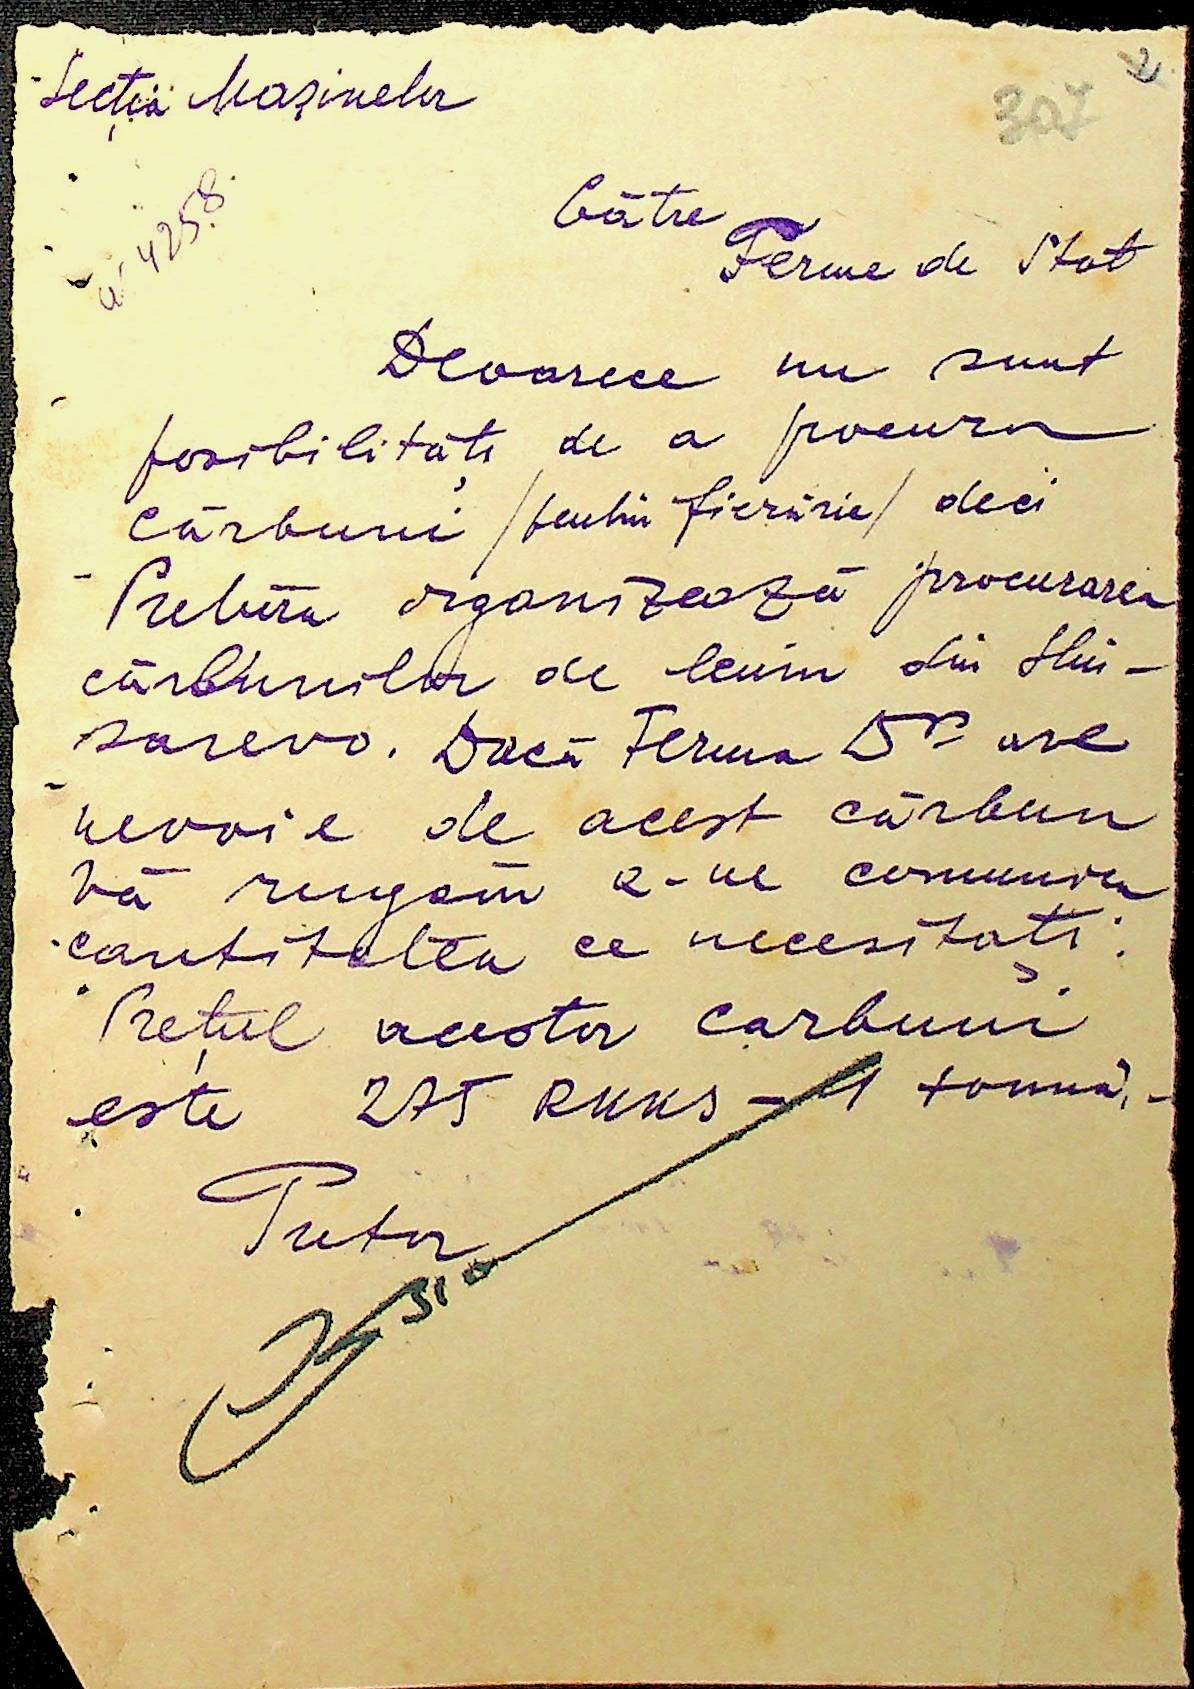 2
307
Secția Mașinelor
N 4258
Către
Ferme de Stat
Deoarece nu sunt
posibilități de a procura
cărbuni /pentru fierărie/ deci
Pretura organizează procurarea
cărbunilor de lemn din Sliu-
sarevo. Dacă Ferma Dvs are
nevoie de acest cărbun
vă rugăm a-ne comunica
cantitatea ce necesitați.
Prețul acestor carbuni
este 275 RKKS – 1 tonnă.-
Pretor